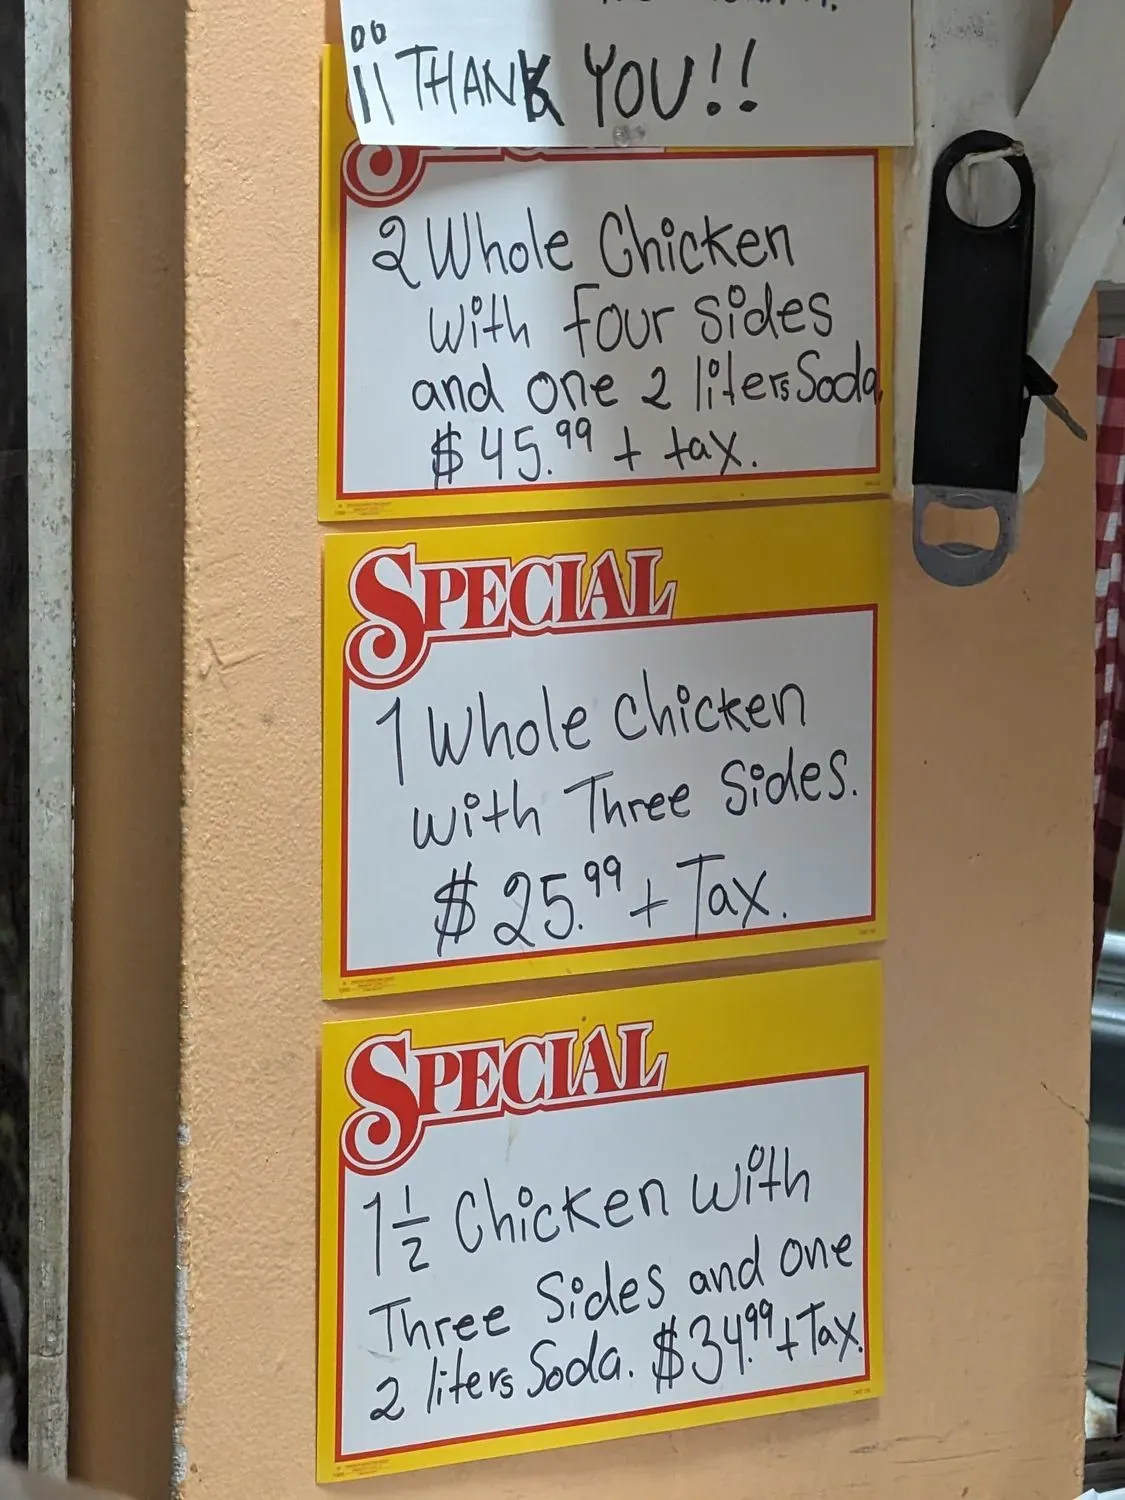 ¡¡THANK YOU!!
2 Whole Chicken
with four sides
and one 2 liters Soda.
$45.99 + tax.
SPECIAL
1 Whole Chicken
with Three Sides.
$25.99 + Tax.
SPECIAL
1 1/2 Chicken with
Three Sides and one
2 liters Soda. $34.99 + Tax.